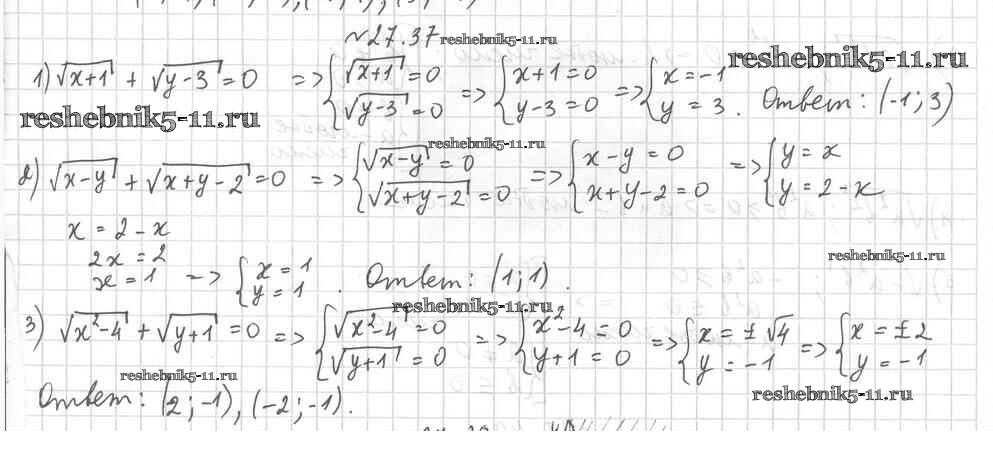 №27.37 reshebnik5-11.ru
1) √(x+1) + √(y-3) = 0 => { √(x+1) = 0 √(y-3) = 0 => { x+1=0 y-3=0 => { x=-1 y=3. Ответ: (-1; 3) reshebnik5-11.ru
reshebnik5-11.ru
reshebnik5-11.ru
2) √(x-y) + √(x+y-2) = 0 => { √(x-y) = 0 √(x+y-2) = 0 => { x-y=0 x+y-2=0 => { y=x y=2-x
x = 2-x
2x = 2
x = 1 => { x=1 y=1 . Ответ: (1; 1).
reshebnik5-11.ru
reshebnik5-11.ru
3) √(x²-4) + √(y+1) = 0 => { √(x²-4) = 0 √(y+1) = 0 => { x²-4=0 y+1=0 => { x=±√4 y=-1 => { x=±2 y=-1
reshebnik5-11.ru
reshebnik5-11.ru
Ответ: (2; -1), (-2; -1).